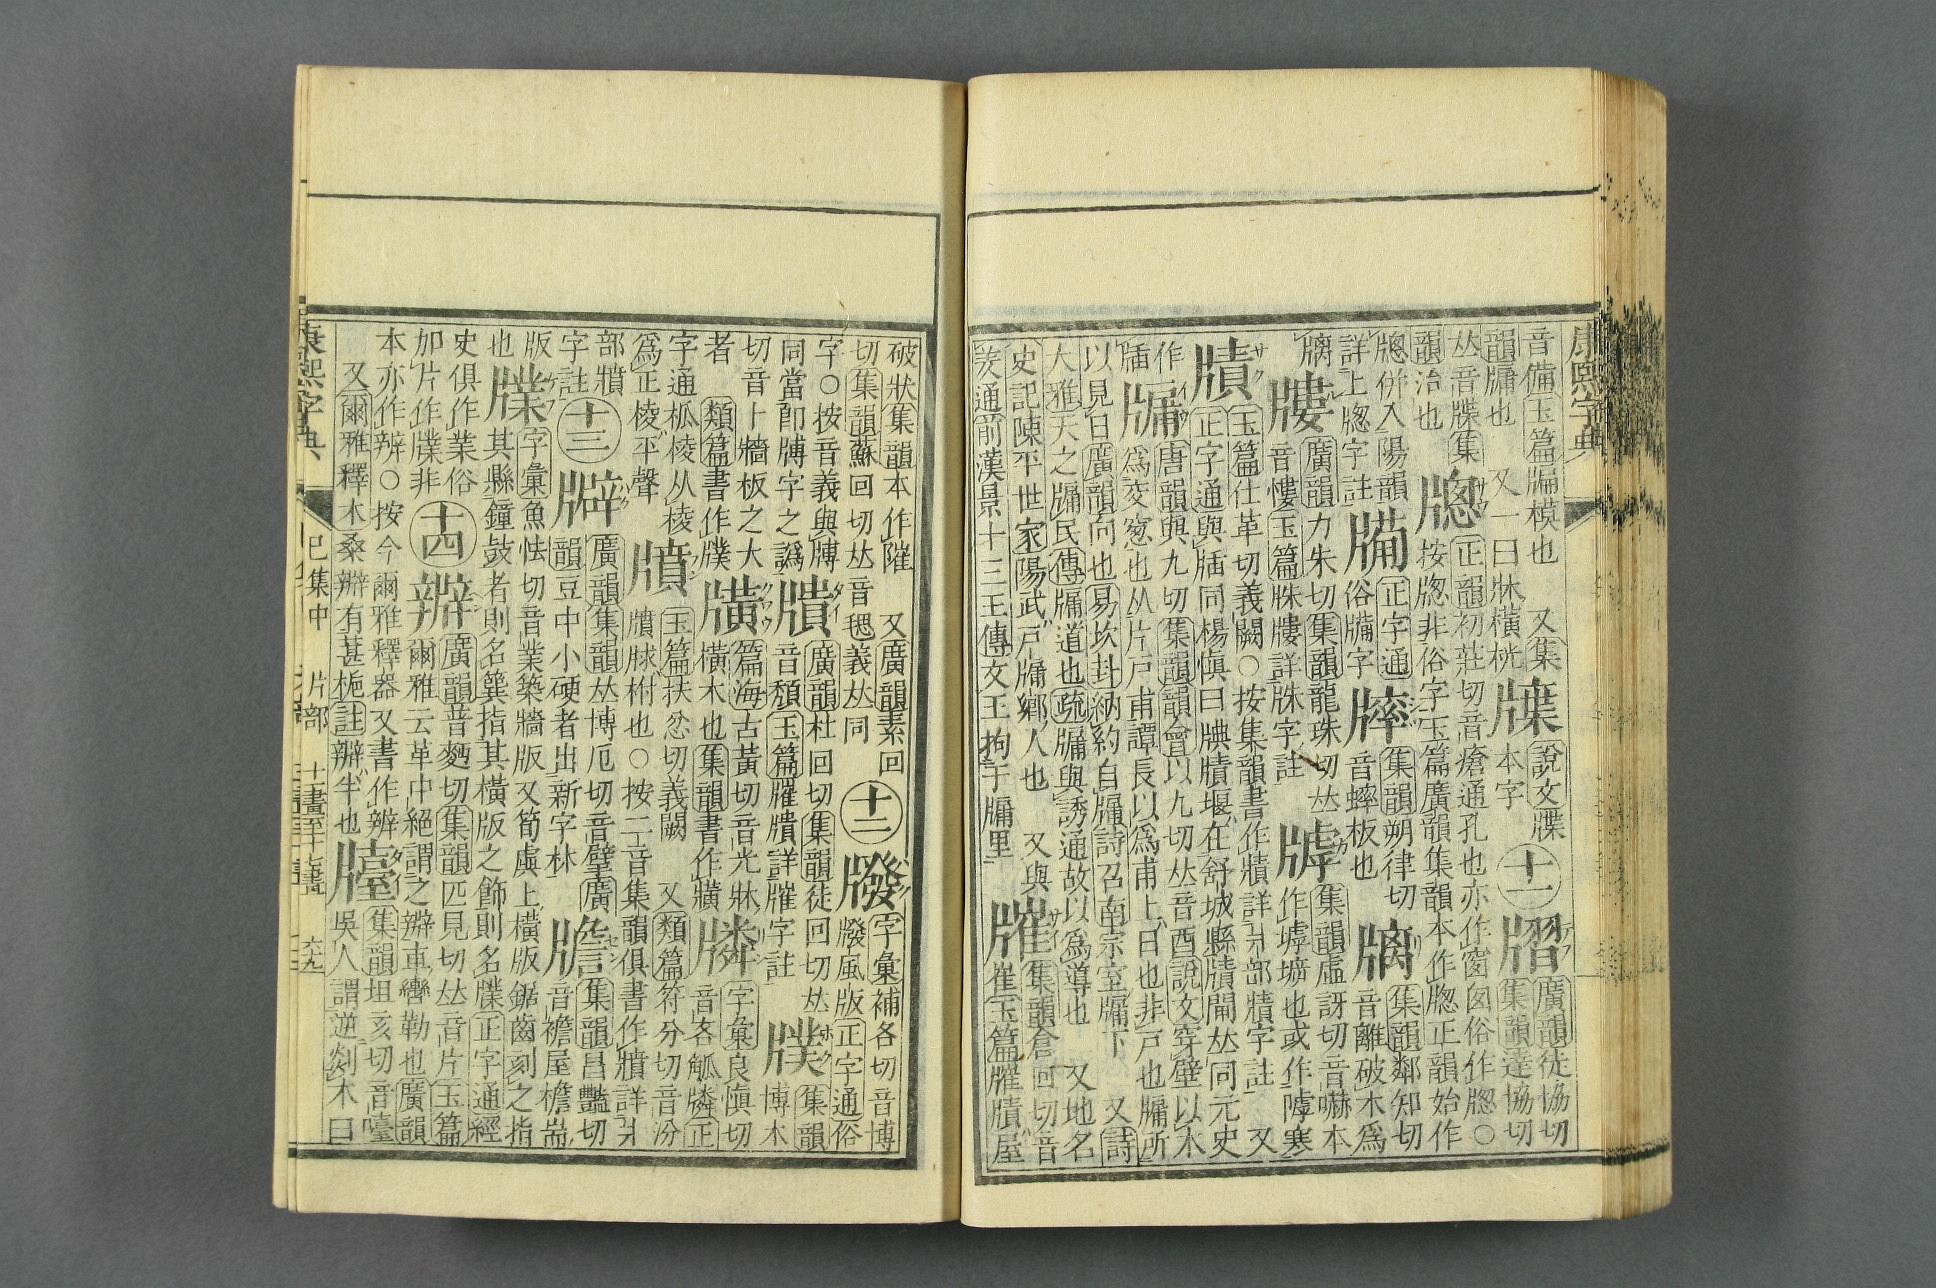 康熙字典
音備玉篇牑模也 又集
韻牗也 又一曰牀橫桄
說文牒
本字
十一
廣韻徒協切
集韻達協切
𠀤音牒集
韻治也
牕
正韻初莊切音瘡通孔也亦作窗囪俗作牎○
按牎非俗字玉篇廣韻集韻本作牎正韻始作
牕併入陽韻
詳上牎字註
正字通
俗牑字
集韻朔律切
音蟀板也
集韻鄰知切
音離破木爲
廣韻力朱切集韻龍珠切𠀤
音慺玉篇 詳 字註
集韻虛訝切音嚇本
作 也或作罅寒
玉篇仕革切義闕○按集韻書作 詳爿部 字註 又
正字通與牐同楊愼曰 堰在舒城縣 閘𠀤同元史
作
牐
牖
唐韻與九切集韻韻會以九切𠀤音酉說文穿壁以木
爲交窻也从片戸甫譚長以爲甫上日也非戸也牖所
以見日廣韻向也易坎卦納約自牖詩召南宗室牖下 又詩
大雅天之牖民傳牖道也疏牖與誘通故以爲導也 又地名
史記陳平世家陽武戸牖鄉人也 又與
羑通前漢景十三王傳文王拘于牖里
集韻倉回切音
崔玉篇 屋
破狀集韻本作 又廣韻素回
切集韻蘇回切𠀤音毸義𠀤同
十二
字彙補各切音博
風版正字通俗
字○按音義與牔
同當卽牔字之譌
廣韻杜回切集韻徒回切𠀤
音頹玉篇 詳 字註
集韻
博木
切音卜牆板之大
者 類篇書作
篇海古黃切音光牀
橫木也集韻書作
字彙良愼切
音吝觚 正
字通柧棱从棱
爲正棱平聲
玉篇扶忿切義闕 又類篇符分切音汾
柎也○按二音集韻俱書作 詳爿
部
字註
十三
廣韻集韻𠀤博厄切音擘廣
韻豆中小硬者出新字林
集韻昌豔切
音襜屋檐耑
版
也
字彙魚怯切音業築牆版又筍虡上橫版鋸齒刻之指
其縣鐘鼓者則名簨指其橫版之飾則名 正字通經
史俱作業俗
加片作 非
十四
廣韻普麪切集韻匹見切𠀤音片玉篇
爾雅云革中絕謂之 車轡勒也廣韻
本亦作辨○按今爾雅釋器又書作辨
又爾雅釋木桑辨有葚梔註辨半也
集韻坦亥切音
吳人謂逆剡木曰
康熙字典
巳集中 片部 十一畫至十四畫 六九